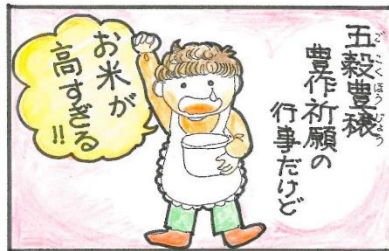 五穀豊穣
ごこくほうじょう
豊作祈願の
行事だけど
お米が
高すぎる
!!